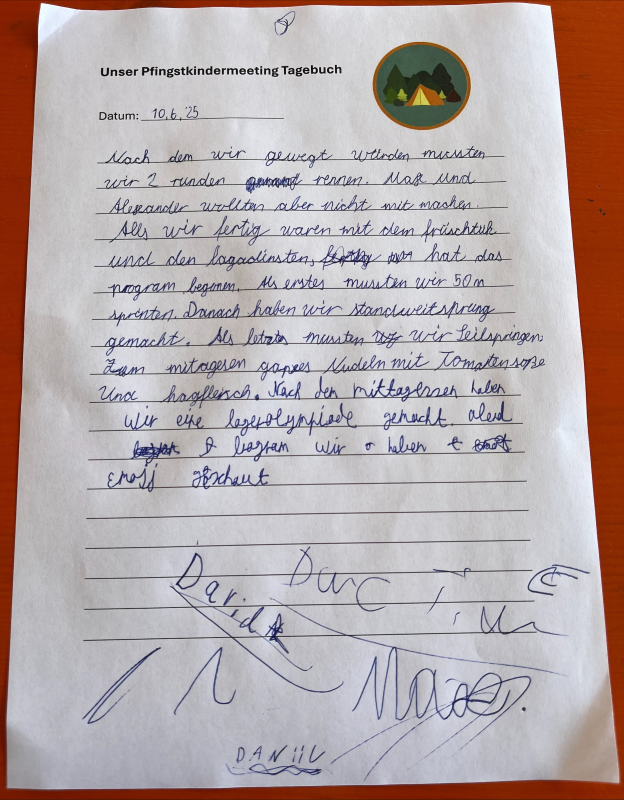 Unser Pfingstkindermeeting Tagebuch
Datum: 10.6.25
Nach dem wir gewegt würden mussten
wir 2 runden rennen. Max und
Alexander wollten aber nicht mit machen.
Alls wir fertig waren mit dem früschtuk
und den lagadinsten, hat das
program begonen. Als erstes mussten wir 50m
sprinten. Danach haben wir standweitsprung
gemacht. Als letztes mussten wir Seilspringen.
Zum mitagesen gapes Nudeln mit Tomatensoße
Und hagfleisch. Nach den mittagessen haben
Wir eine lagerolympiade gemacht.
wir haben
emoji geschaut
David
Tim
DANiiL